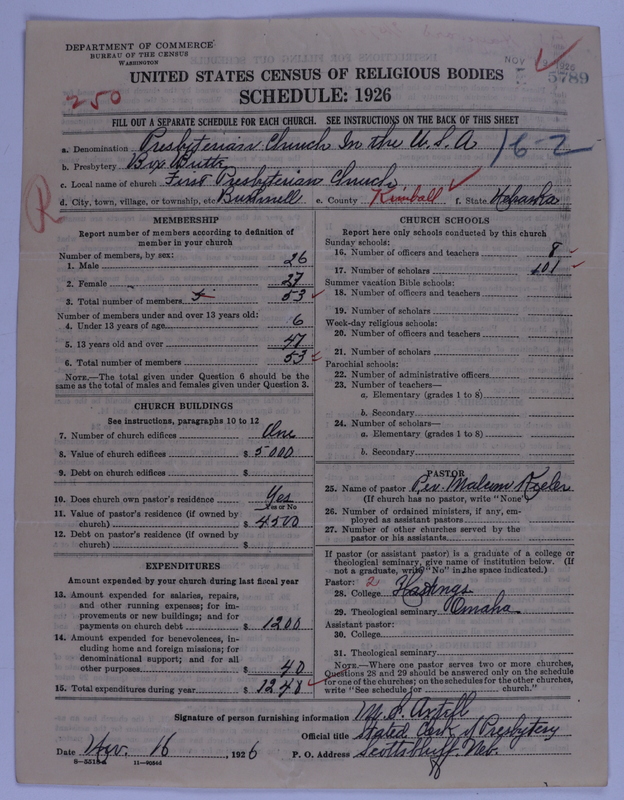 DEPARTMENT OF COMMERCE
BUREAU OF THE CENSUS
WASHINGTON
NOV 1926
5789
UNITED STATES CENSUS OF RELIGIOUS BODIES
250
SCHEDULE: 1926
FILL OUT A SEPARATE SCHEDULE FOR EACH CHURCH. SEE INSTRUCTIONS ON THE BACK OF THIS SHEET
a. Denomination Presbyterian Church In the U.S.A. 16-2
b. Presbytery Box Butte
c. Local name of church First Presbyterian Church
d. City, town, village, or township, etc Bushnell e. County Kimball f. State Nebraska
R
MEMBERSHIP
Report number of members according to definition of member in your church
Number of members, by sex:
1. Male 26
2. Female 27
3. Total number of members 53
Number of members under and over 13 years old:
4. Under 13 years of age 6
5. 13 years old and over 47
6. Total number of members 53
NOTE.—The total given under Question 6 should be the same as the total of males and females given under Question 3.
CHURCH BUILDINGS
See instructions, paragraphs 10 to 12
7. Number of church edifices One
8. Value of church edifices $ 5000
9. Debt on church edifices $
10. Does church own pastor's residence Yes
Yes or No
11. Value of pastor's residence (if owned by church) $ 4500
12. Debt on pastor's residence (if owned by church) $
EXPENDITURES
Amount expended by your church during last fiscal year
13. Amount expended for salaries, repairs, and other running expenses; for improvements or new buildings; and for payments on church debt $ 1200
14. Amount expended for benevolences, including home and foreign missions; for denominational support; and for all other purposes $ 40
15. Total expenditures during year $ 1240
CHURCH SCHOOLS
Report here only schools conducted by this church
Sunday schools:
16. Number of officers and teachers 8
17. Number of scholars 101
Summer vacation Bible schools:
18. Number of officers and teachers
19. Number of scholars
Week-day religious schools:
20. Number of officers and teachers
21. Number of scholars
Parochial schools:
22. Number of administrative officers
23. Number of teachers—
a. Elementary (grades 1 to 8)
b. Secondary
24. Number of scholars—
a. Elementary (grades 1 to 8)
b. Secondary
PASTOR
25. Name of pastor Rev. Malcum Keeler
(If church has no pastor, write "None")
26. Number of ordained ministers, if any, employed as assistant pastors
27. Number of other churches served by the pastor or his assistants
If pastor (or assistant pastor) is a graduate of a college or theological seminary, give name of institution below. (If not a graduate, write "No" in the space indicated.)
Pastor: 2
28. College Hastings
29. Theological seminary Omaha
Assistant pastor:
30. College
31. Theological seminary
NOTE.—Where one pastor serves two or more churches, Questions 28 and 29 should be answered only on the schedule for one of the churches; on the schedules for the other churches, write "See schedule for church."
Signature of person furnishing information
Official title Stated Clerk of Presbytery
Date Nov. 16, 1926 P. O. Address Scottsbluff, Neb.